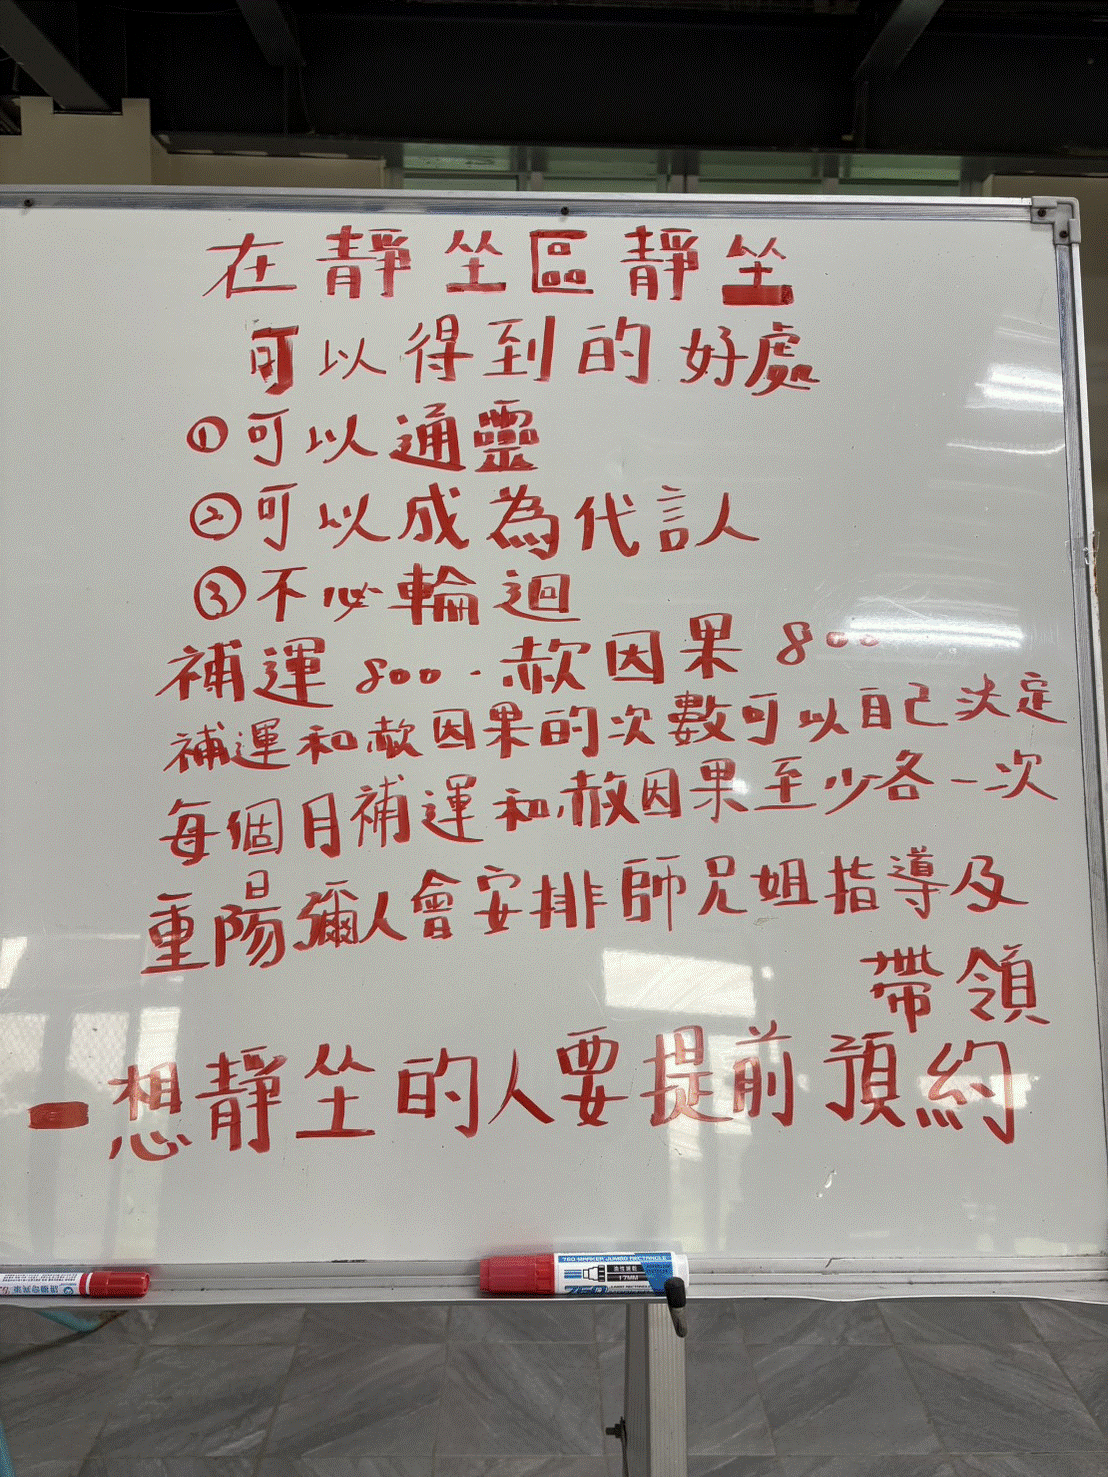 在靜坐區靜坐
可以得到的好處
①可以通靈
②可以成為代言人
③不必輪迴
補運800.赦因果800
補運和赦因果的次數可以自己決定
每個月補運和赦因果至少各一次
重陽彌人會安排師兄姐指導及
帶領
想靜坐的人要提前預約
760 MARKER JUMBO RECTANGLE
17MM